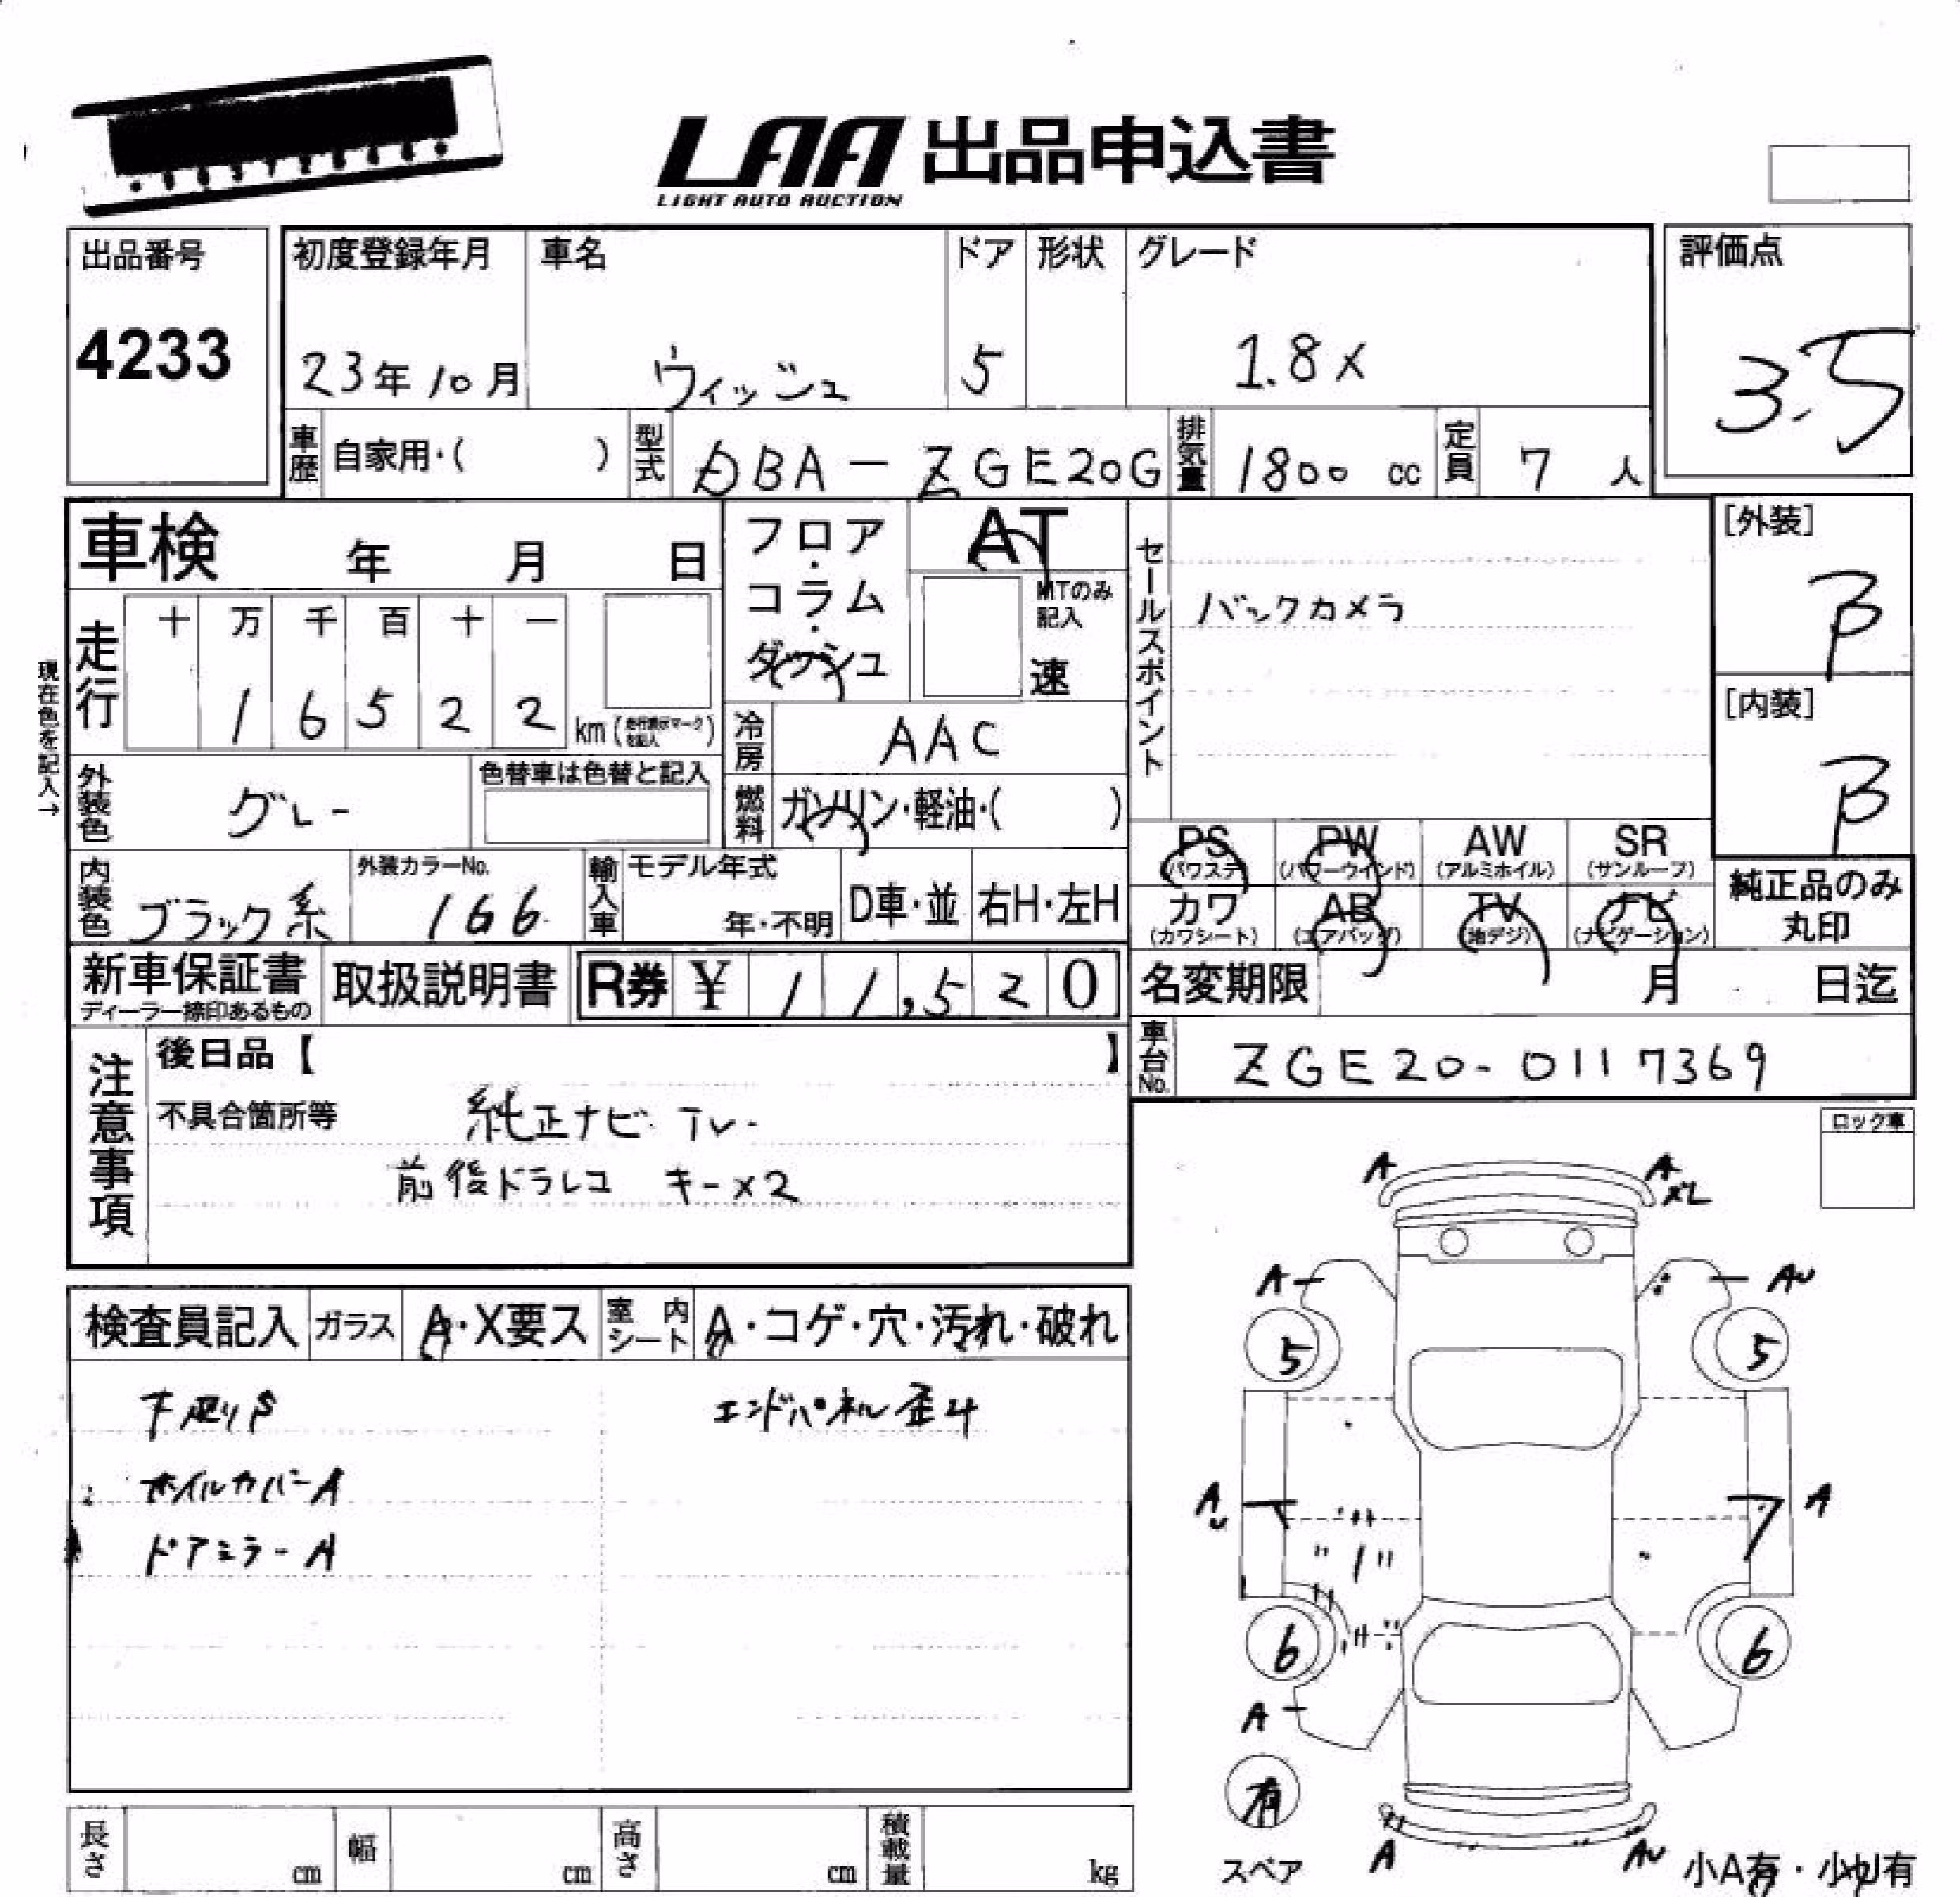 LAA 出品申込書
LIGHT AUTO AUCTION
出品番号
4233
初度登録年月 車名 ドア 形状 グレード
23年10月 ウィッシュ 5 1.8X
評価点
3.5
車歴 自家用・( ) 型式 DBA-ZGE20G 排気量 1800 cc 定員 7 人
車検 年 月 日
フロア・コラム・ダッシュ
AT
MTのみ記入
速
セールスポイント
バックカメラ
[外装]
B
[内装]
B
現在色を記入→
走行 十 万 千 百 十 一
1 6 5 2 2 km (走行表示マークを記入)
冷房 AAC
外装色 グレー 色替車は色替と記入
燃料 ガソリン・軽油・( )
PS (パワステ) PW (パワーウインド) AW (アルミホイル) SR (サンルーフ)
カワ (カワシート) AB (エアバッグ) TV (地デジ) ナビ (ナビゲーション)
純正品のみ丸印
内装色 ブラック系 外装カラーNo. 166 輸入車 モデル年式 年・不明 D車・並 右H・左H
新車保証書 ディーラー捺印あるもの 取扱説明書 R券 ¥ 11,520
名変期限 月 日迄
車台No. ZGE20-0117369
注意事項
後日品【 】
不具合箇所等 純正ナビ TV-
前後ドラレコ キー×2
ロック車
A A
XL
A AU
5 5
AU A
6 6
A
有
スペア
A AU
小A有・小U有
検査員記入 ガラス A・X要ス 室内シート A・コゲ・穴・汚れ・破れ
下廻りS エンドパネル歪み
ホイルカバーA
ドアミラーA
長さ cm 幅 cm 高さ cm 積載量 kg